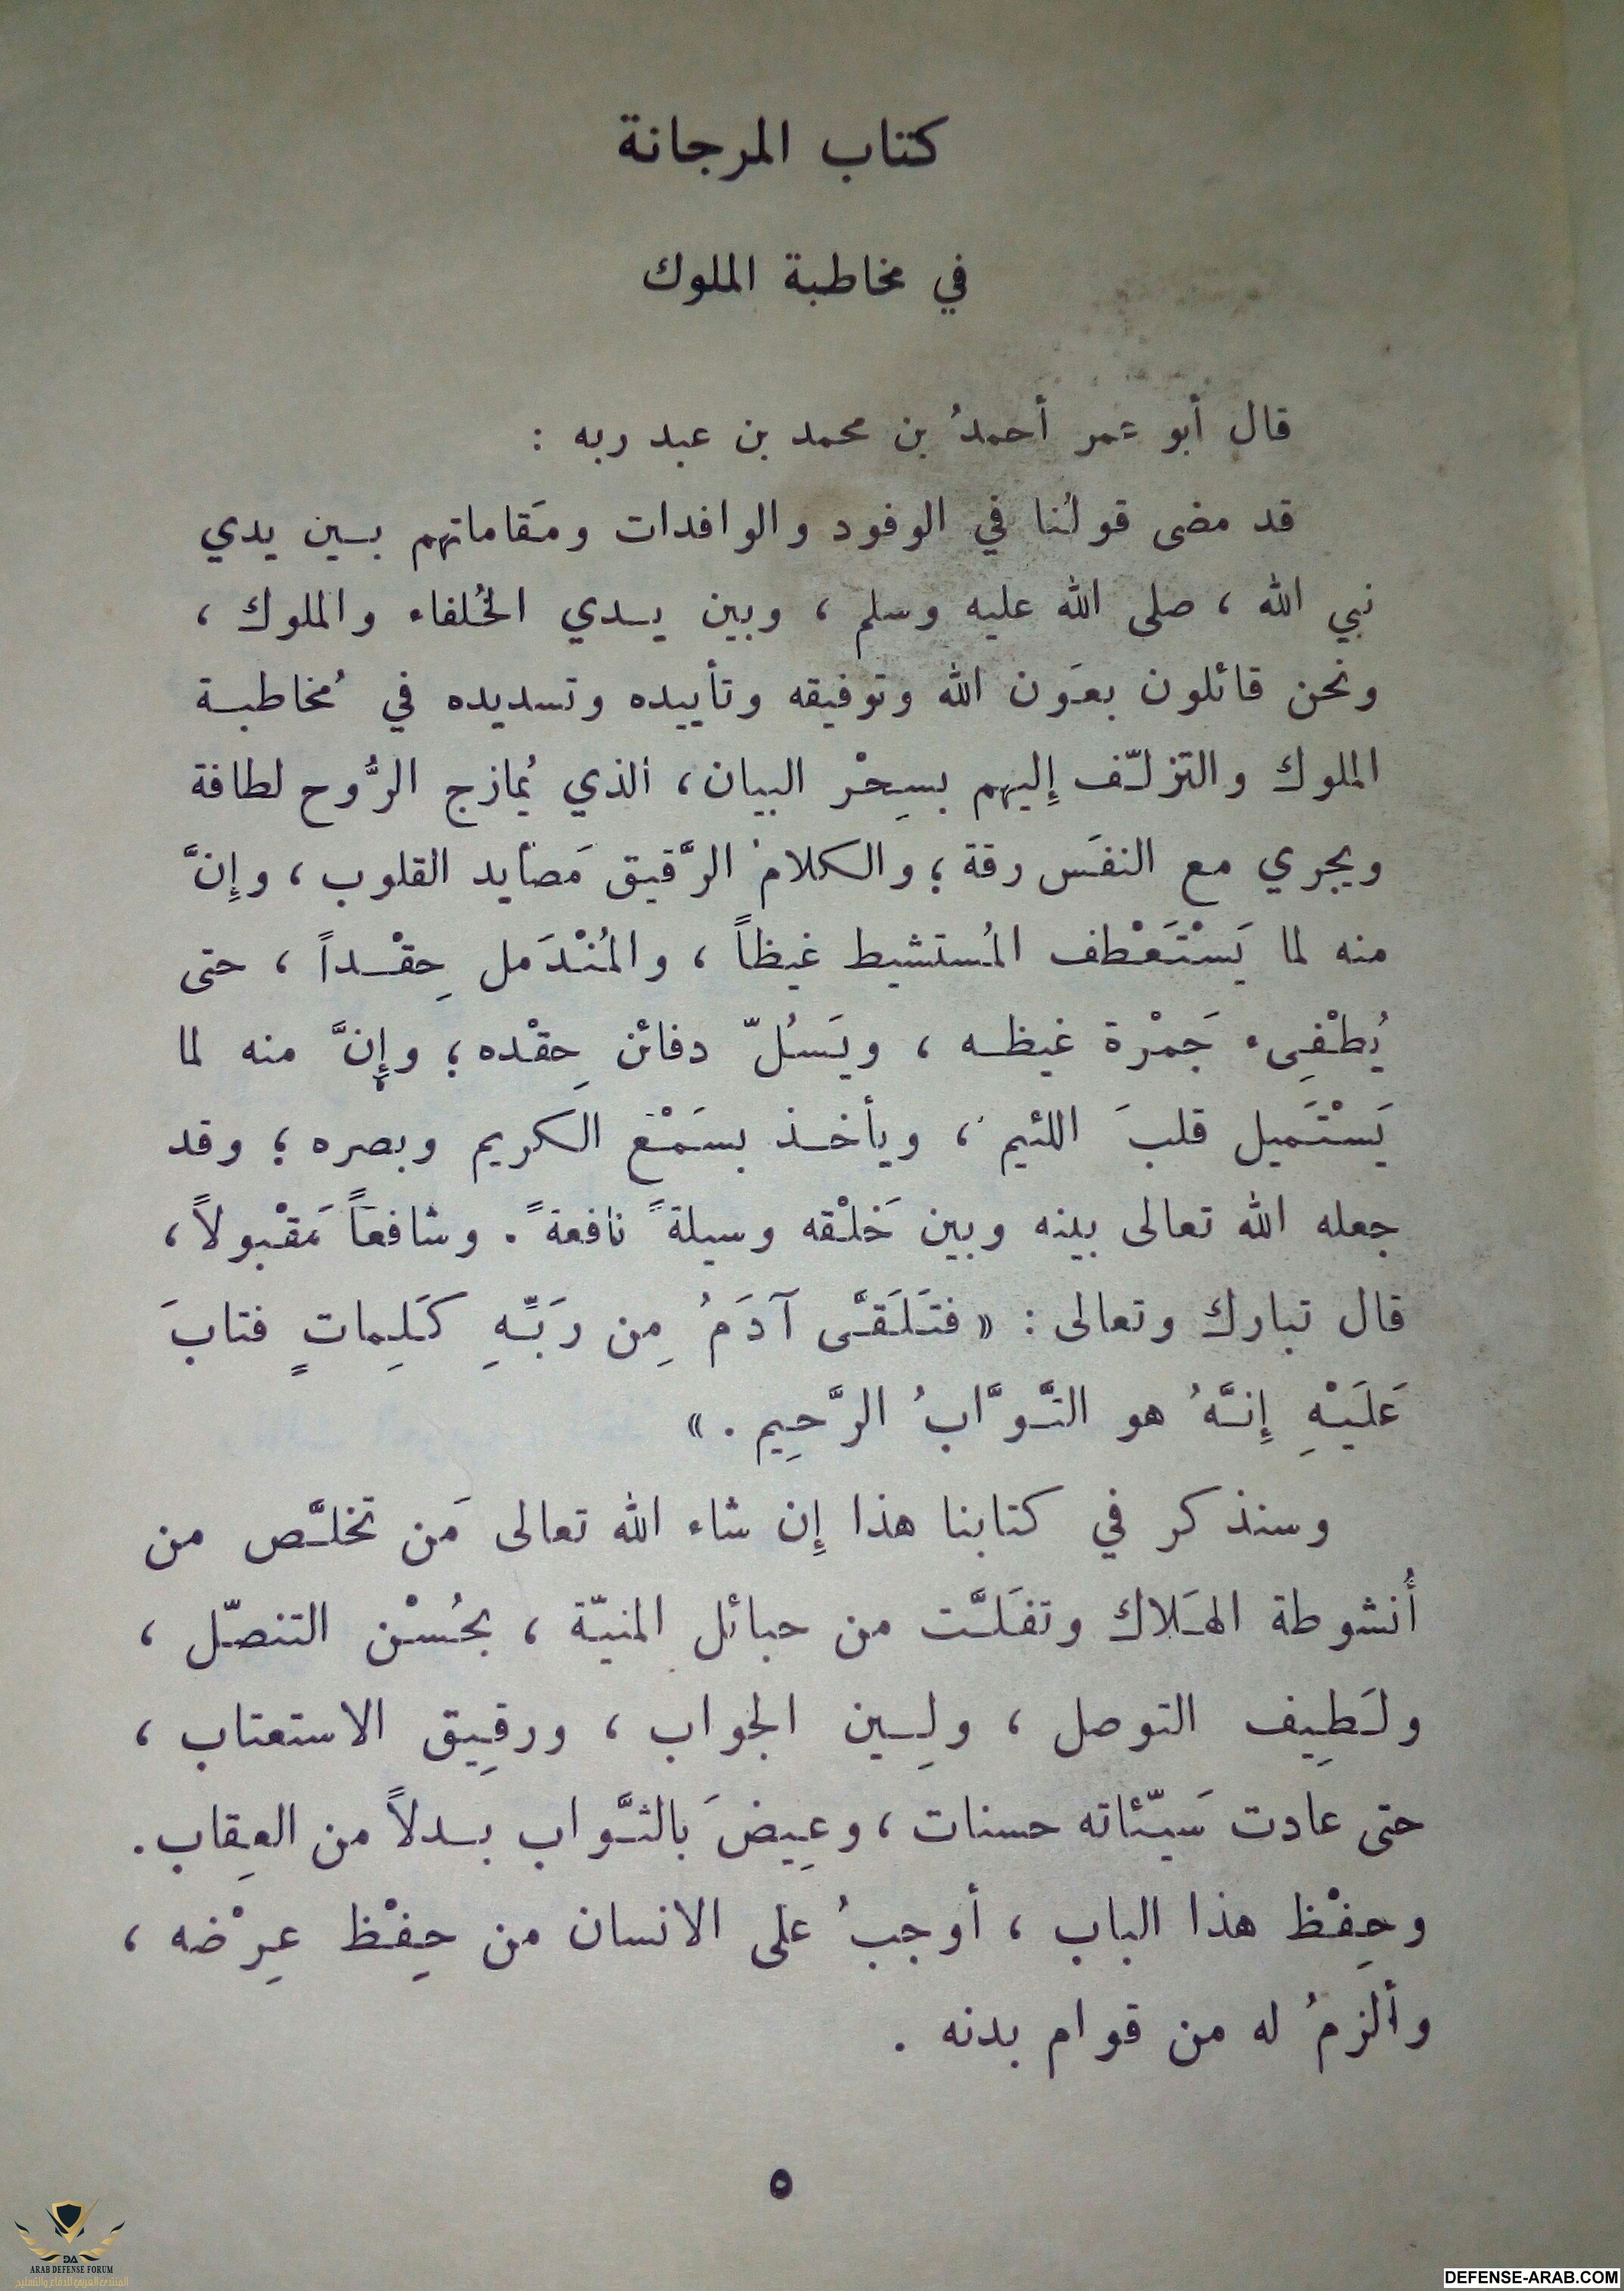 كتاب المرجانة
في مخاطبة الملوك
قال أبو عمر أحمدُ بن محمد بن عبد ربه :
قد مضى قولُنا في الوفود والوافدات ومَقاماتهم بـين يدي
نبي الله ، صلى الله عليه وسلم ، وبين يـدي الخُلفاء والملوك ،
ونحن قائلون بعَون الله وتوفيقه وتأييده وتسديده في مُخاطبـة
الملوك والتزلّف إِليهم بسِحْر البيان، الذي يُمازج الرُّوح لطافة
ويجري مع النفَس رقة ؛ والكلامُ الرَّقيق مَصايد القلوب ، وإِنَّ
منه لما يَسْتَعْطف المُستشيط غيظاً ، والمُنْدَمل حِقْـداً ، حتى
يُطْفِىء جَمْرة غيظـه ، ويَسُلّ دفائن حِقْده ؛ وإِنَّ منه لما
يَسْتَميل قلبَ اللئيم ، ويأخـذ بسَمْع الكريم وبصره ؛ وقد
جعله الله تعالى بينه وبين خَلْقه وسيلةً نافعةً . وشافعاً مَقْبولاً ،
قال تبارك وتعالى : « فتَلَقَّى آدَمُ مِن رَبِّهِ كَلِماتٍ فتابَ
عَلَيْهِ إِنَّهُ هو التَّوَّابُ الرَّحِيم . »
وسنذكر في كتابنا هذا إِن شاء الله تعالى مَن تخلَّص من
أُنشوطة الهَلاك وتفَلَّت من حبائل المنيّة ، بحُسْن التنصّل ،
ولَطِيف التوصل ، ولِـين الجواب ، ورقِيق الاستعتاب ،
حتى عادت سَيّئاته حسنات ، وعِيضَ بالثَّواب بـدلاً من العِقاب .
وحِفْظ هذا الباب ، أوجبُ على الانسان من حِفْظ عِرْضه ،
وألزمُ له من قوام بدنه .
٥
DA
ARAB DEFENSE FORUM
المنتدى العربي للدفاع والتسليح
DEFENSE-ARAB.COM